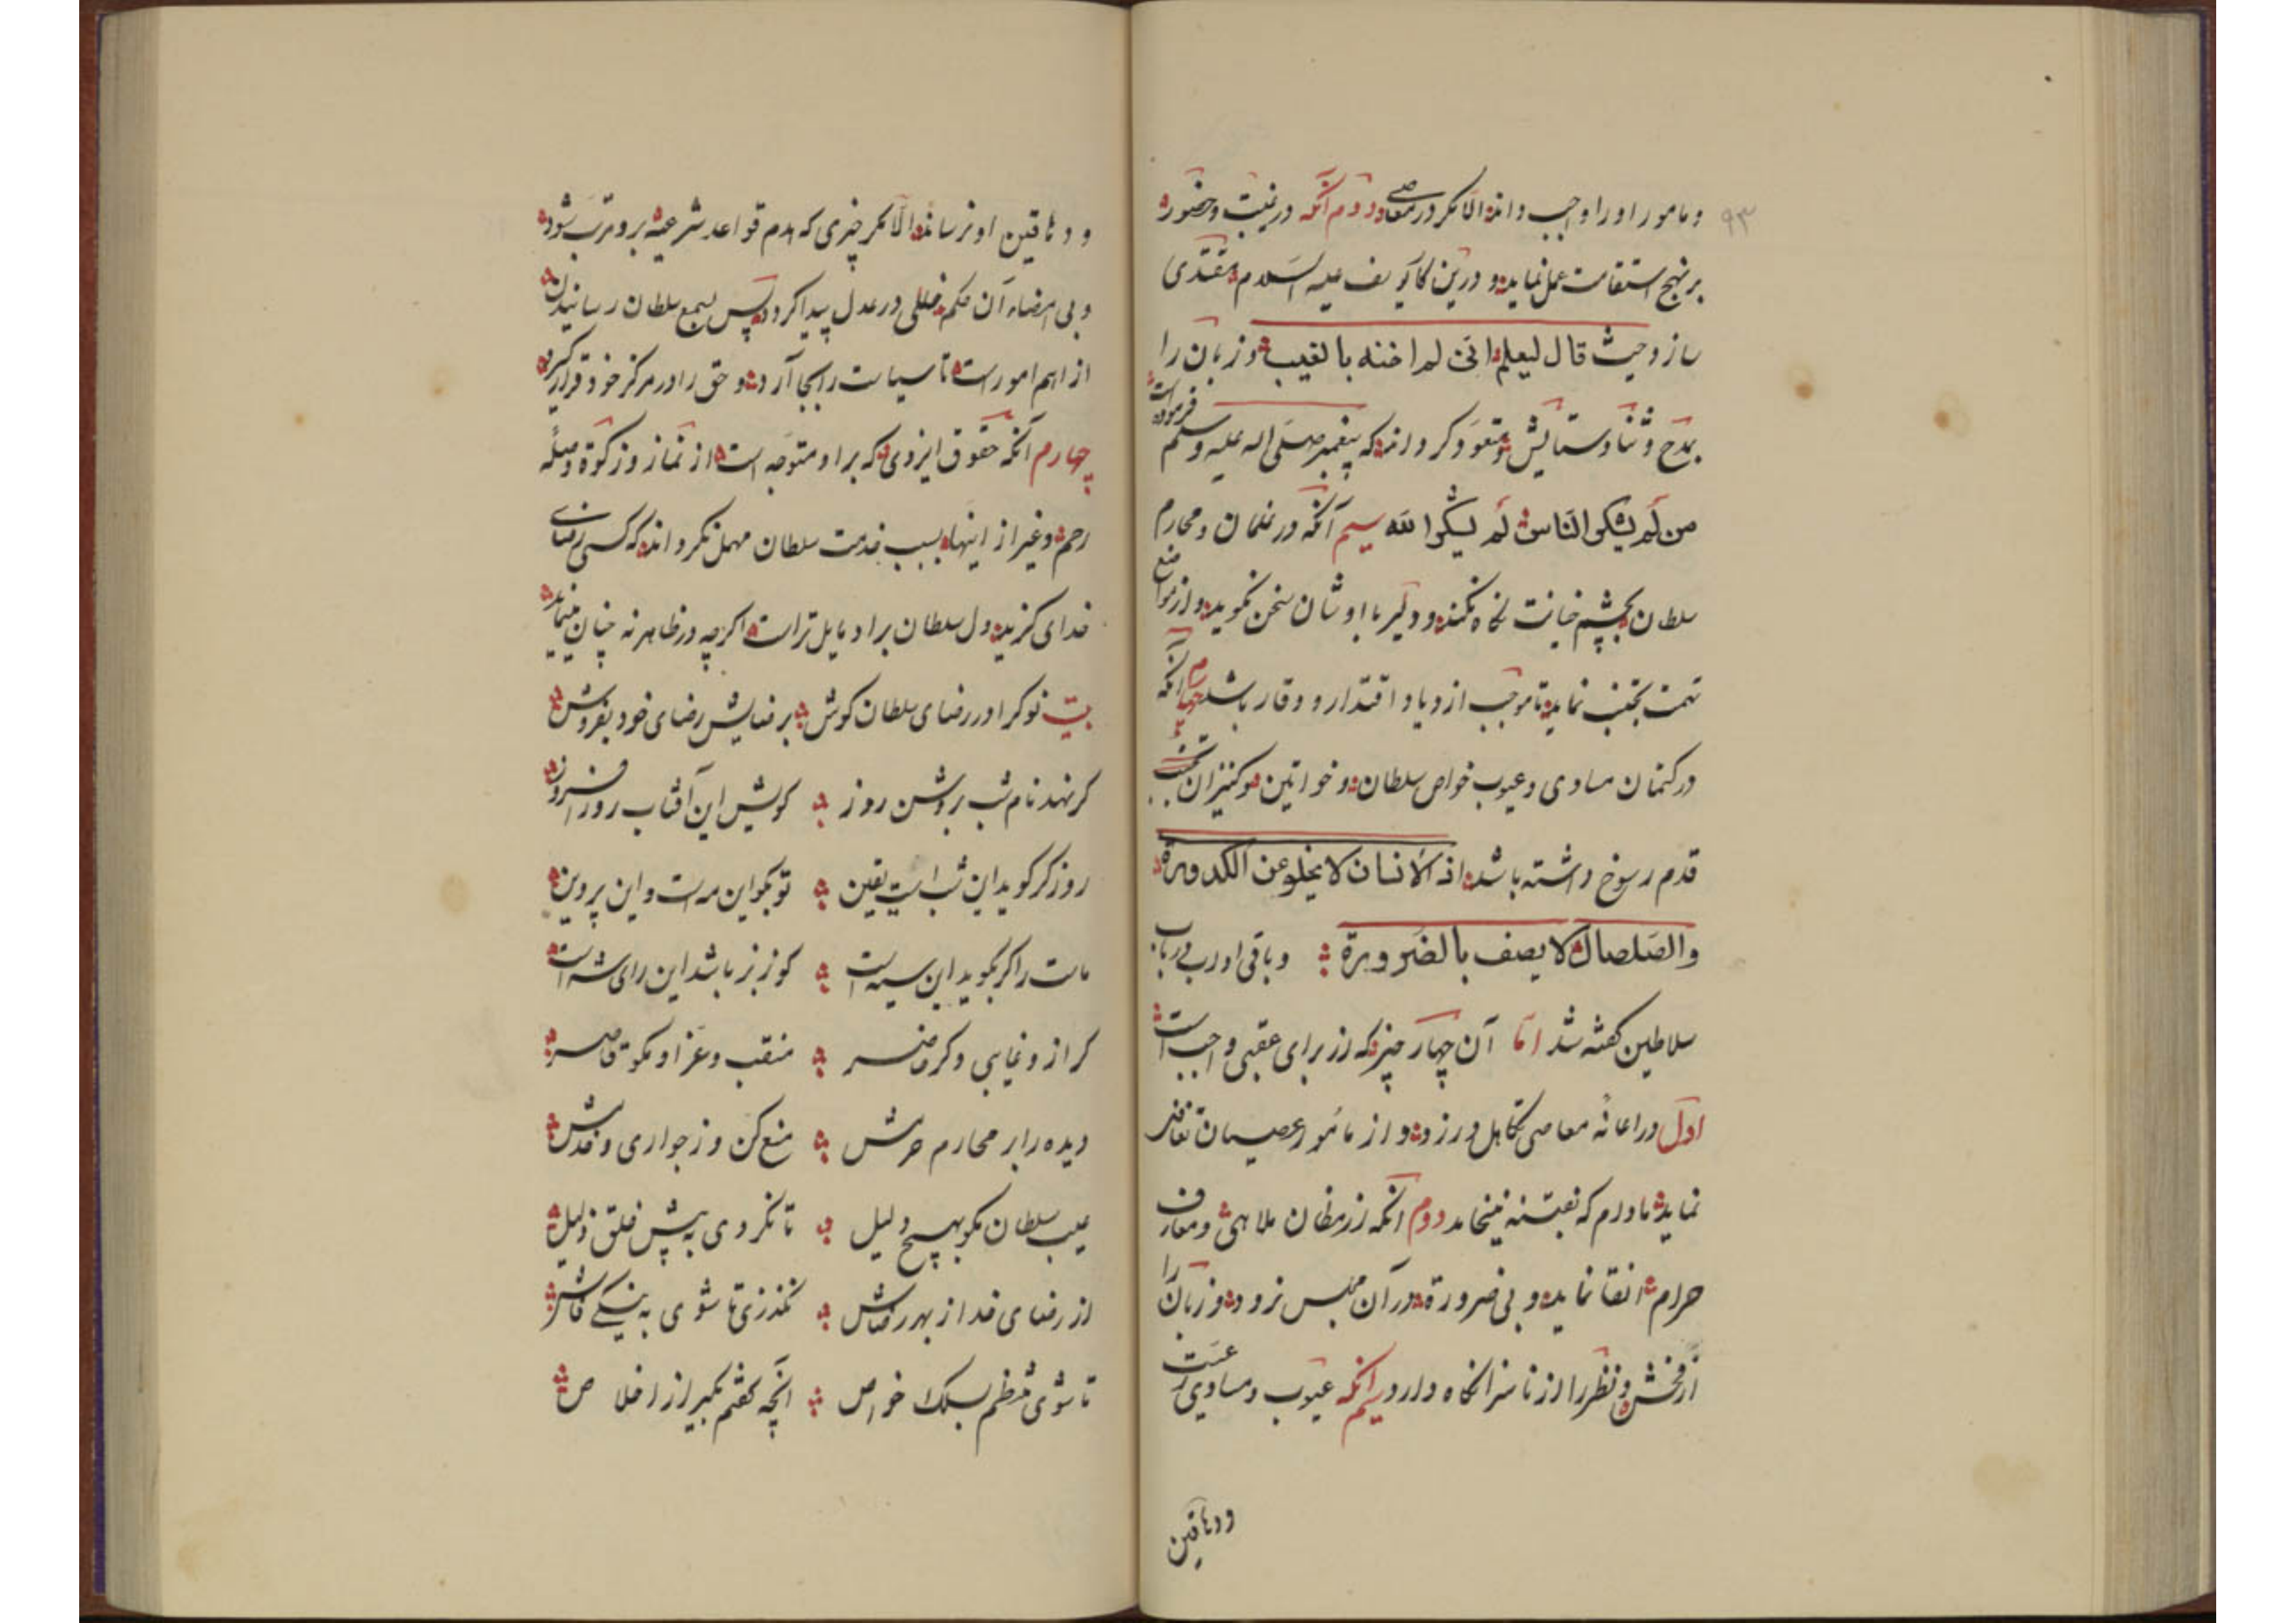 ۹۳
و مامور او را واجب داند الا مکر در معاصی دوم آنکه در غیبت و حضور
بر نهج استقامت عمل نماید و درین کار یوسف علیه السلام مقتدی
سازد حیث قال لیعلم انی لم اخنه بالغیب و زبان را
بمدح و ثنا و ستایش متعود کرداند که پیغمبر صلی اله علیه و سلم فرموده است
من لم یشکر الناس لم یشکر الله سیم آنکه در غلمان و محارم
سلطان بچشم خیانت نکاه نکند و دلیر با اوشان سخن نکوید و از مواضع
تهمت تجنب نماید تا موجب ازدیاد اقتدار و وقار باشد چهارم آنکه
در کتمان مساوی و عیوب خواص سلطان و خواتین و کنیزان
قدم رسوخ داشته باشد اذ الانسان لا یخلو عن الکدورة
والصلصال لا یصف بالضرورة و باقی اورب در باب
سلاطین کفته شد اما آن چهار چیز که از برای عقبی واجب است
اول در اعانه معاصی تکاهل ورزد و از مامور عصیان تغافل
نماید مادام که بفتنه نینجامد دوم آنکه از مظان ملاهی و معازف
حرام اتقا نماید و بی ضرورة در آن مجلس نرود و زبان را
از فحش و نظر را از ناسزا نکاه دارد سیم آنکه عیوب و مساوی رعیت
و دهاقین
و دهاقین او نرساند الا مکر چیزی که هدم قواعد شرعیه برو مترتب شود
و بی امضاء آن حکم خللی در عدل پیدا کردد پس بسمع سلطان رسانیدن
از اهم امور است تا سیاست را بجا آرد و حق را در مرکز خود قرار کیرد
چهارم آنکه حقوق ایزدی که بر او متوجه است از نماز و زکوة و صله
رحم و غیر از اینها بسبب خدمت سلطان مهمل نکرداند که کسی رضای
خدای کزیند دل سلطان بر او مایل تر است اکرچه در ظاهر نه چنان مینماید
بیت نوکرا در رضای سلطان کوش برضایش رضای خود بفروش
کر نهد نام شب بروشن روز کویش این آفتاب روز افروز
روز کر کوید این شب است یقین تو بکو این مه است و این پروین
ماست را کر بکوید این سیه است کو ز بز باشد این رای شه است
کر ازو غایبی و کر حاضر منقب و عز او مکو قاصر
دیده را بر محارم حرمش منع کن وز جواری و خدمش
عیب سلطان مکو بهیچ دلیل تا نکردی به پیش خلق ذلیل
از رضای خدا از بهر رضاش نکذری تا شوی به نیکی فاش
تا شوی منتظم بسلک خواص آنچه کفتم بکیر از اخلاص